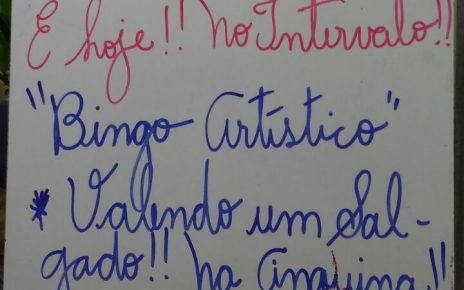 É hoje!! No Intervalo!!
"Bingo Artístico"
* Valendo um Sal-
gado!! na Cantina!!